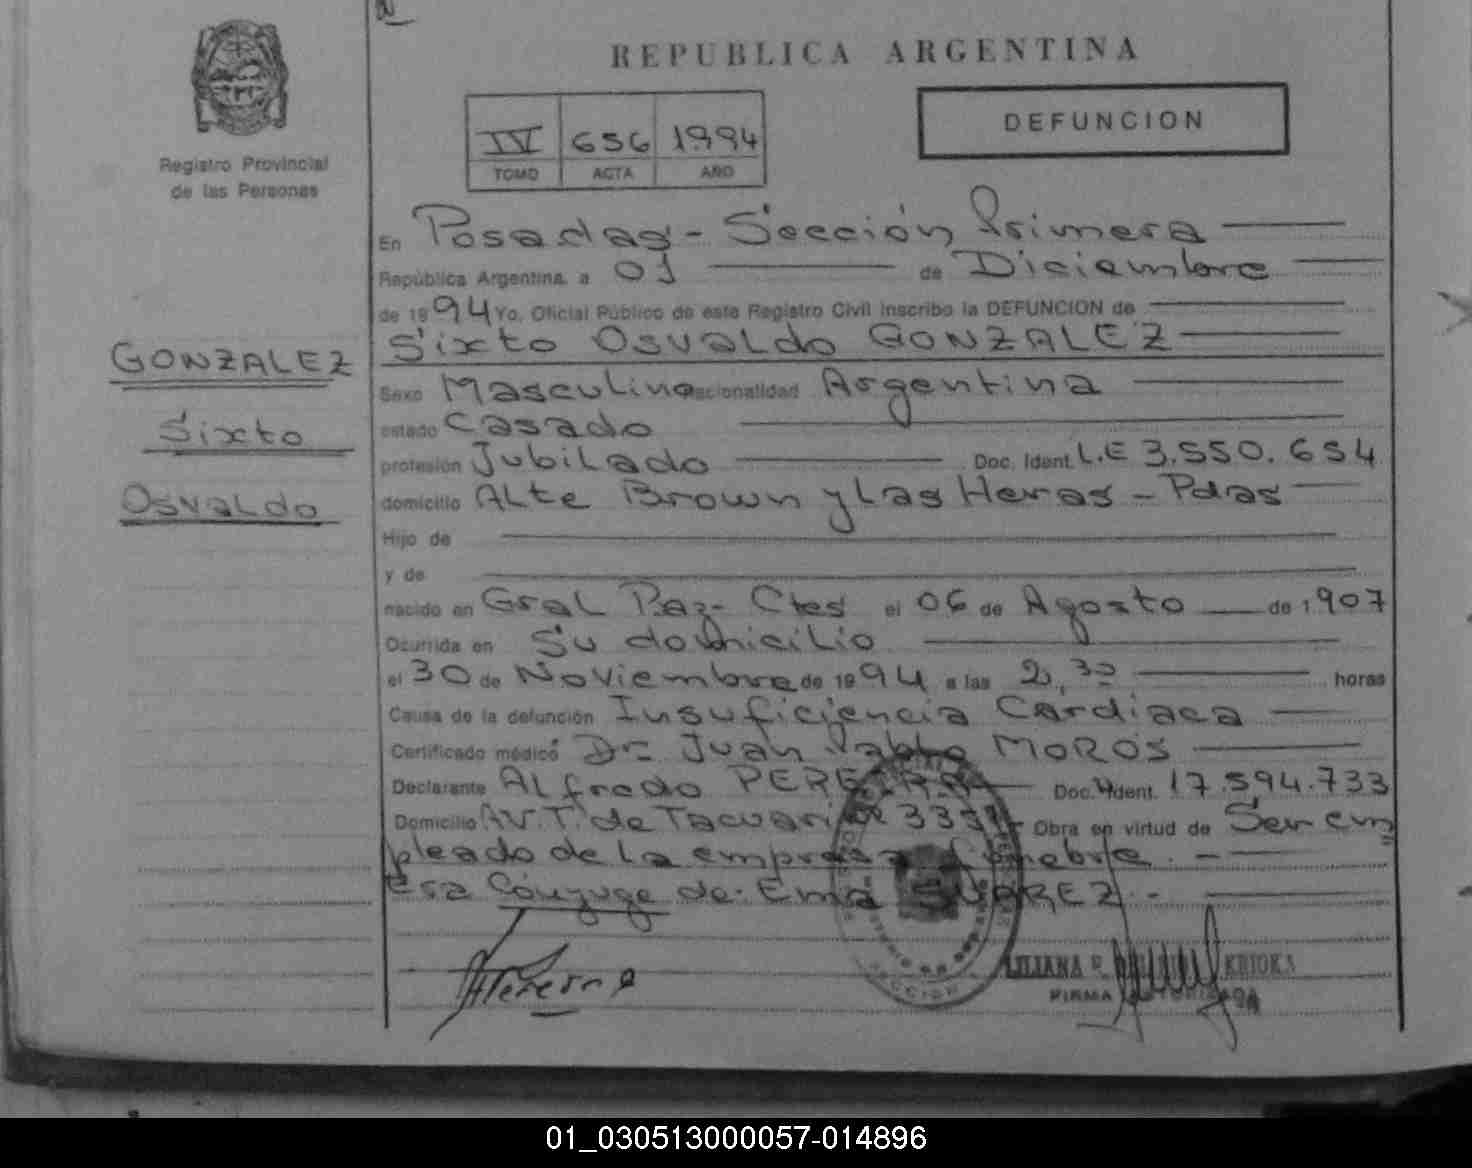 REPUBLICA ARGENTINA
Registro Provincial
de las Personas
IV 656 1994
TOMO ACTA AÑO
DEFUNCION
GONZALEZ
Sixto
Osvaldo
En Posadas - Sección Primera
República Argentina, a 01 de Diciembre
de 1994 Yo, Oficial Público de este Registro Civil inscribo la DEFUNCION de
Sixto Osvaldo GONZALEZ
Sexo Masculino nacionalidad Argentina
estado Casado
profesión Jubilado Doc. Ident. L.E 3.550.654
domicilio Alte Brown y Las Heras - Pdas
Hijo de
y de
nacido en Gral Paz - Ctes el 06 de Agosto de 1.907
Ocurrida en Su domicilio
el 30 de Noviembre de 1994 a las 2,30 horas
Causa de la defunción Insuficiencia Cardiaca
Certificado médico Dr. Juan Pablo MOROS
Declarante Alfredo PEREIRA Doc. Ident. 17.594.733
Domicilio AV. T. de Tacuari Obra en virtud de Ser em
pleado de la empresa fúnebre. -
Era Cónyuge de: Ema SUAREZ. -
LILIANA KRIOKA
FIRMA AUTORIZADA
01_030513000057-014896